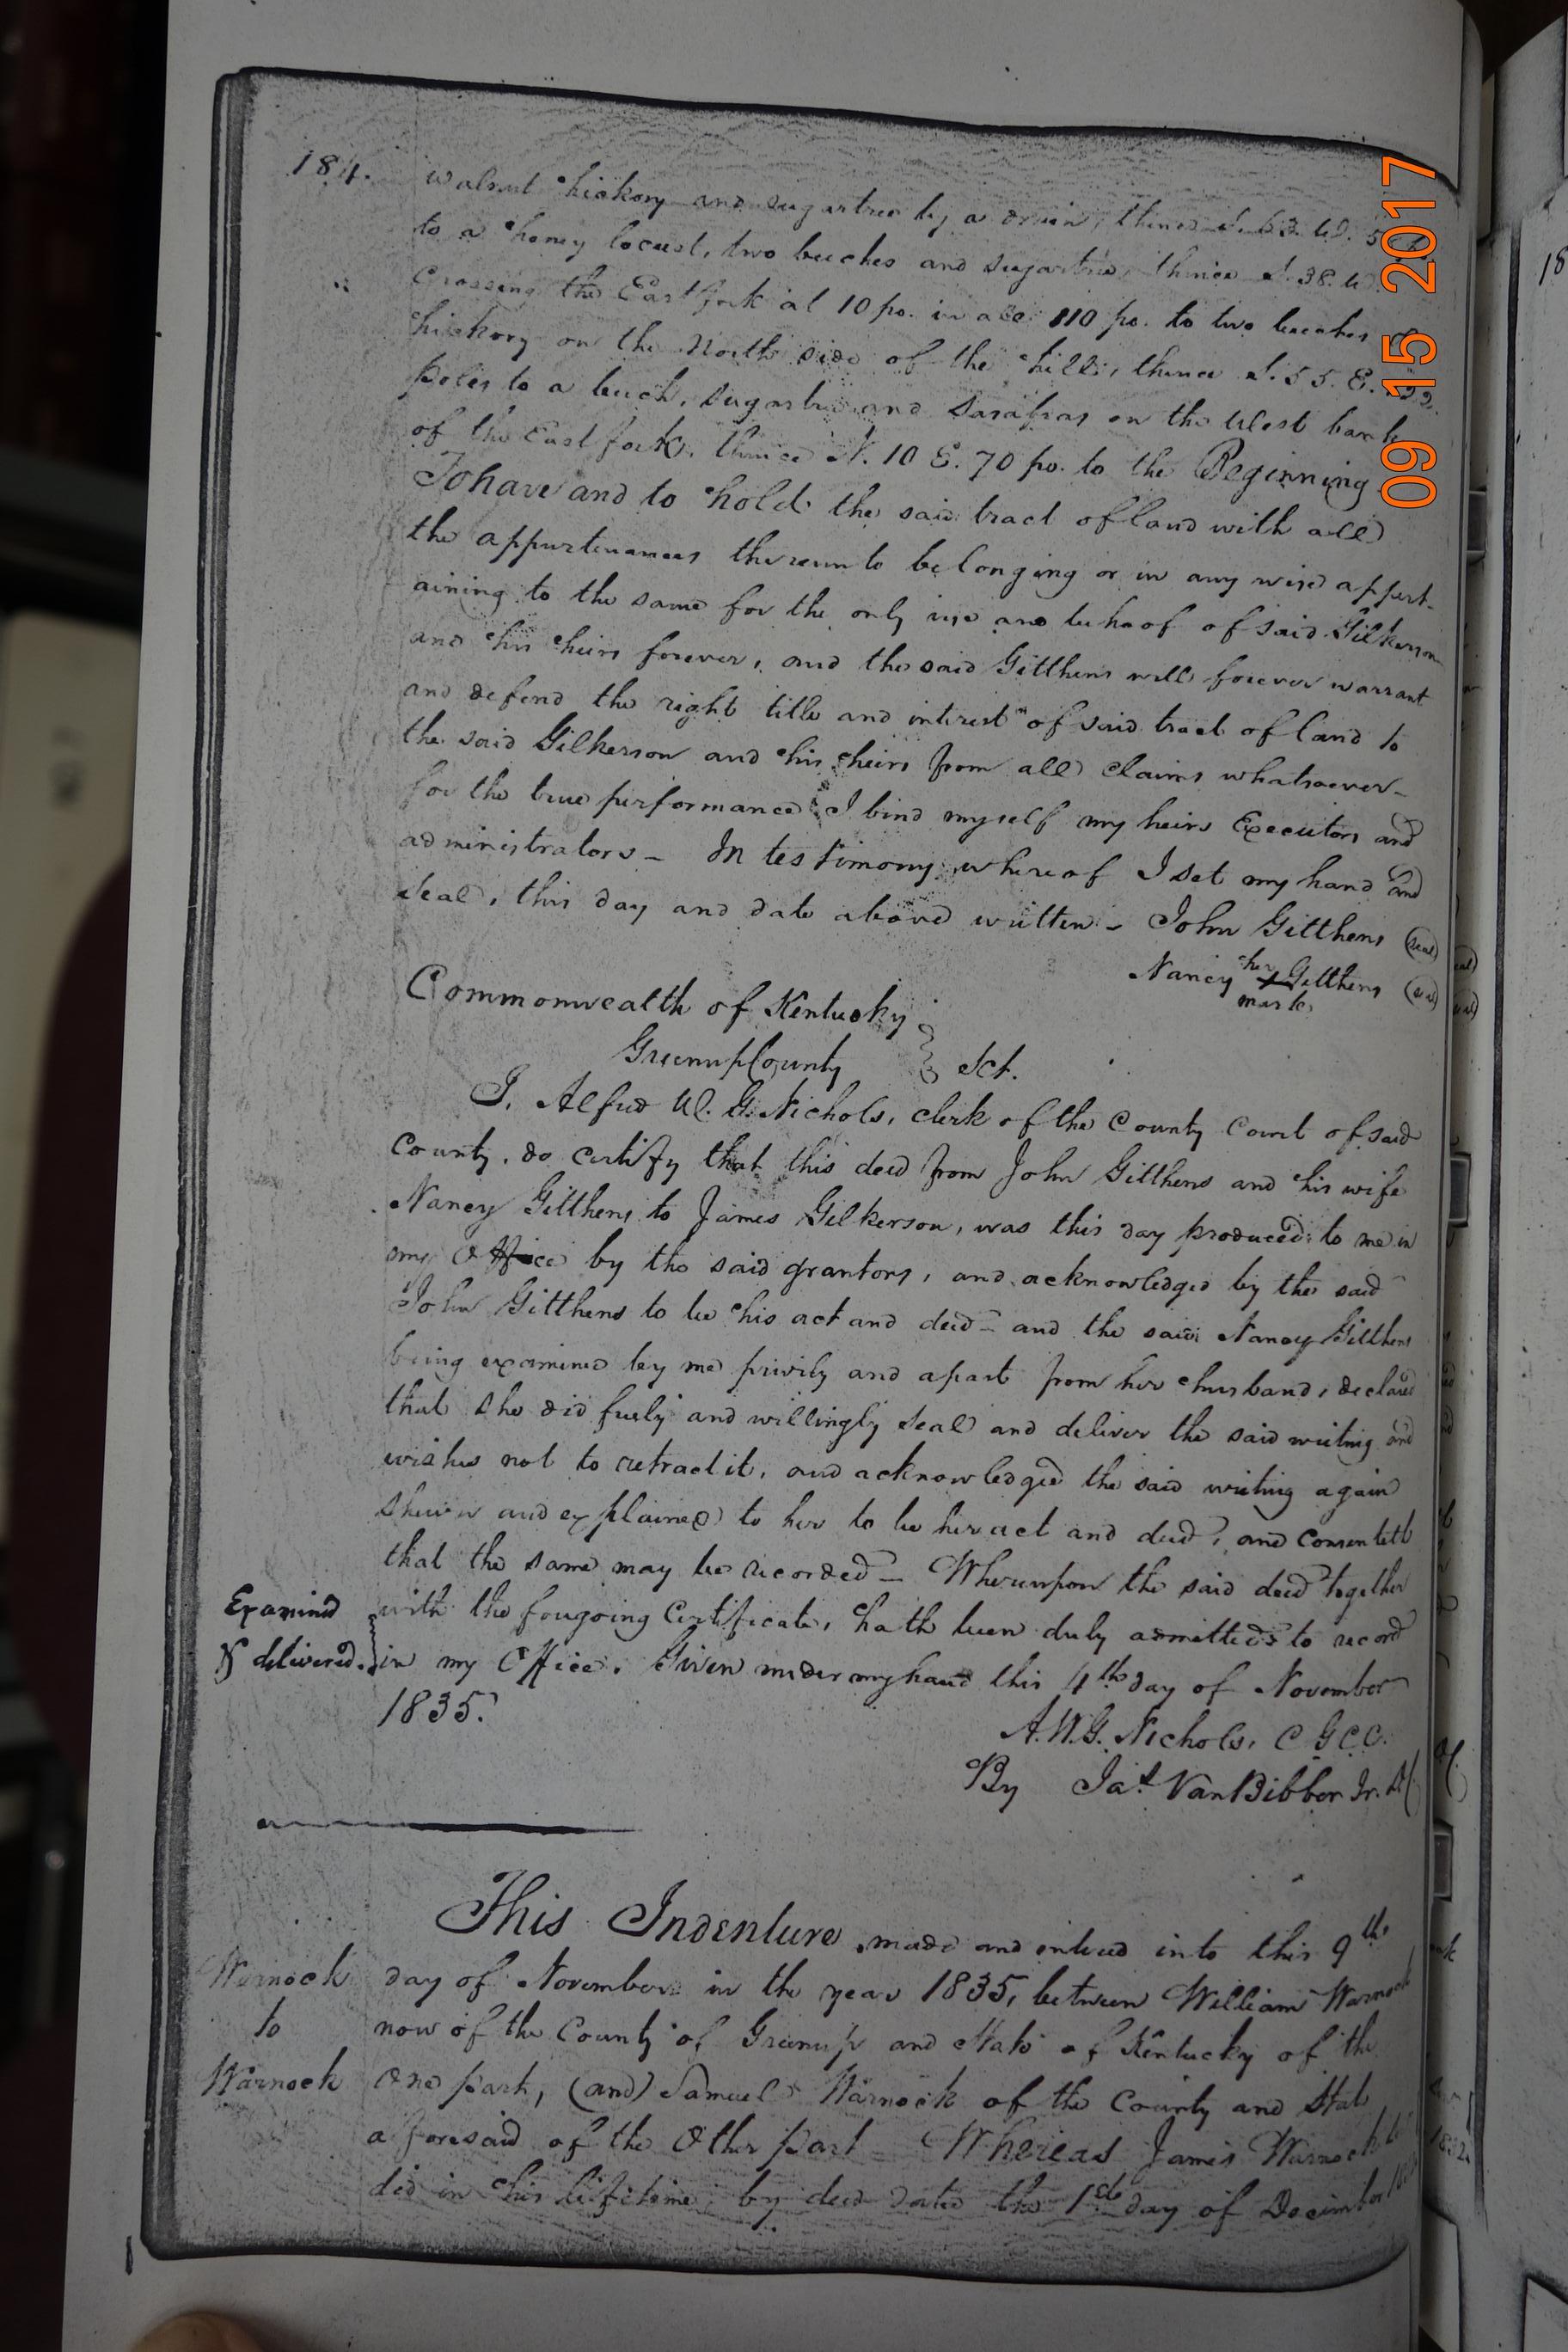 184. walnut hickory and sugartree by a drain, thence S. 63. W.
to a honey locust, two beeches and sugartree, thence S. 38. W.
Crossing the East fork at 10 po. in all 110 po. to two beeches
hickory on the North side of the hill, thence S. 55. E.
poles to a beech, sugartree and Sasafras on the West bank
of the East fork, thence N. 10 E. 70 po. to the Beginning
To have and to hold the said tract of land with all
the appurtenances thereunto belonging or in any wise appert-
aining to the same for the only use and behoof of said Gilkerson
and his heirs forever, and the said Gitthens will forever warrant
and defend the right title and interest of said tract of land to
the said Gilkerson and his heirs from all claims whatsoever -
for the true performance I bind myself my heirs Executors and
administrators - In testimony whereof I set my hand and
Seal, this day and date above written - John Gitthens (seal)
Nancy her x mark Gitthens (seal)
Commonwealth of Kentucky
Greenup County } Sct.
I, Alfred W. G. Nichols, clerk of the County Court of said
County, do certify that this deed from John Gitthens and his wife
Nancy Gitthens to James Gilkerson, was this day produced to me in
my Office by the said grantors, and acknowledged by the said
John Gitthens to be his act and deed - and the said Nancy Gitthens
being examined by me privily and apart from her husband, declared
that she did freely and willingly Seal and deliver the said writing and
wishes not to retract it, and acknowledged the said writing again
shewn and explained to her to be her act and deed, and consenteth
that the same may be recorded - Whereupon the said deed together
Examined with the foregoing Certificate, hath been duly admitted to record
& delivered. in my Office. Given under my hand this 4th day of November
1835.
A. W. G. Nichols, C G C C.
By Jas. VanBibber Jr. D C
This Indenture made and entered into this 9th
Warnock day of November in the year 1835, between William Warnock
to now of the County of Greenup and State of Kentucky of the
Warnock One part, (and) Samuel Warnock of the County and State
aforesaid of the Other part - Whereas James Warnock
did in his lifetime by deed dated the 1st day of December
09 15 2017
18